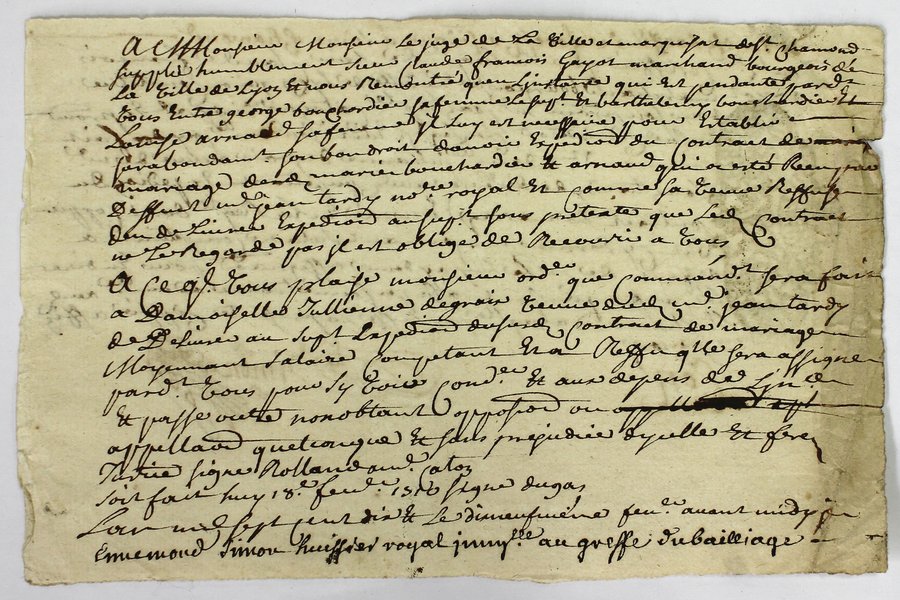 A Monsieur Monsieur Le juge de La Ville et marquisat de St. Chamond
Supplie humblement sieur Claude francois Gayot marchand bourgeois de
La Ville de Lyon Et vous Remontre quen Linstance qui Est pendante pardt
Vous Entre george bouchardier sa femme Le supt Et barthelemy bouchardier Et
arnaud sa femme jl Luy est necessaire pour Etablir
surabondant son bon droit davoir Expedion du Contract de
mariage desd marier bouchardier et arnaud qui a esté Receu par
Deffunt me jean tardy nore royal Et Comme sa Veuve Reffuse
den de Livrer Expedion au supt sous pretexte que Led Contract
ne Le Regarde pas jl est obligé de Recourir a Vous
A Ce ql Vous plaise monsieur ordr que Commandt sera fait
a Damoiselle Jullienne degrais Veuve dud me jean tardy
de Delivrer au supt Lexpedion dususd Contract de mariage
Moyennant Salaire Competant Et a Reffus qlle sera assignee
pardt Vous pour sy Voir Condr Et aux depens de Lince
Et passé outre nonobstant opposion ou
appellaon quelconque Et sans prejudice dycelle Et ferez
Justice signe Rolland
soit fait huy 18e feur 1710 signe dugas
Lan mil sept cent dix Et Le dixneufvieme feur avant midy je
Ennemond Simon huissier royal jmmlle au greffe du bailliage